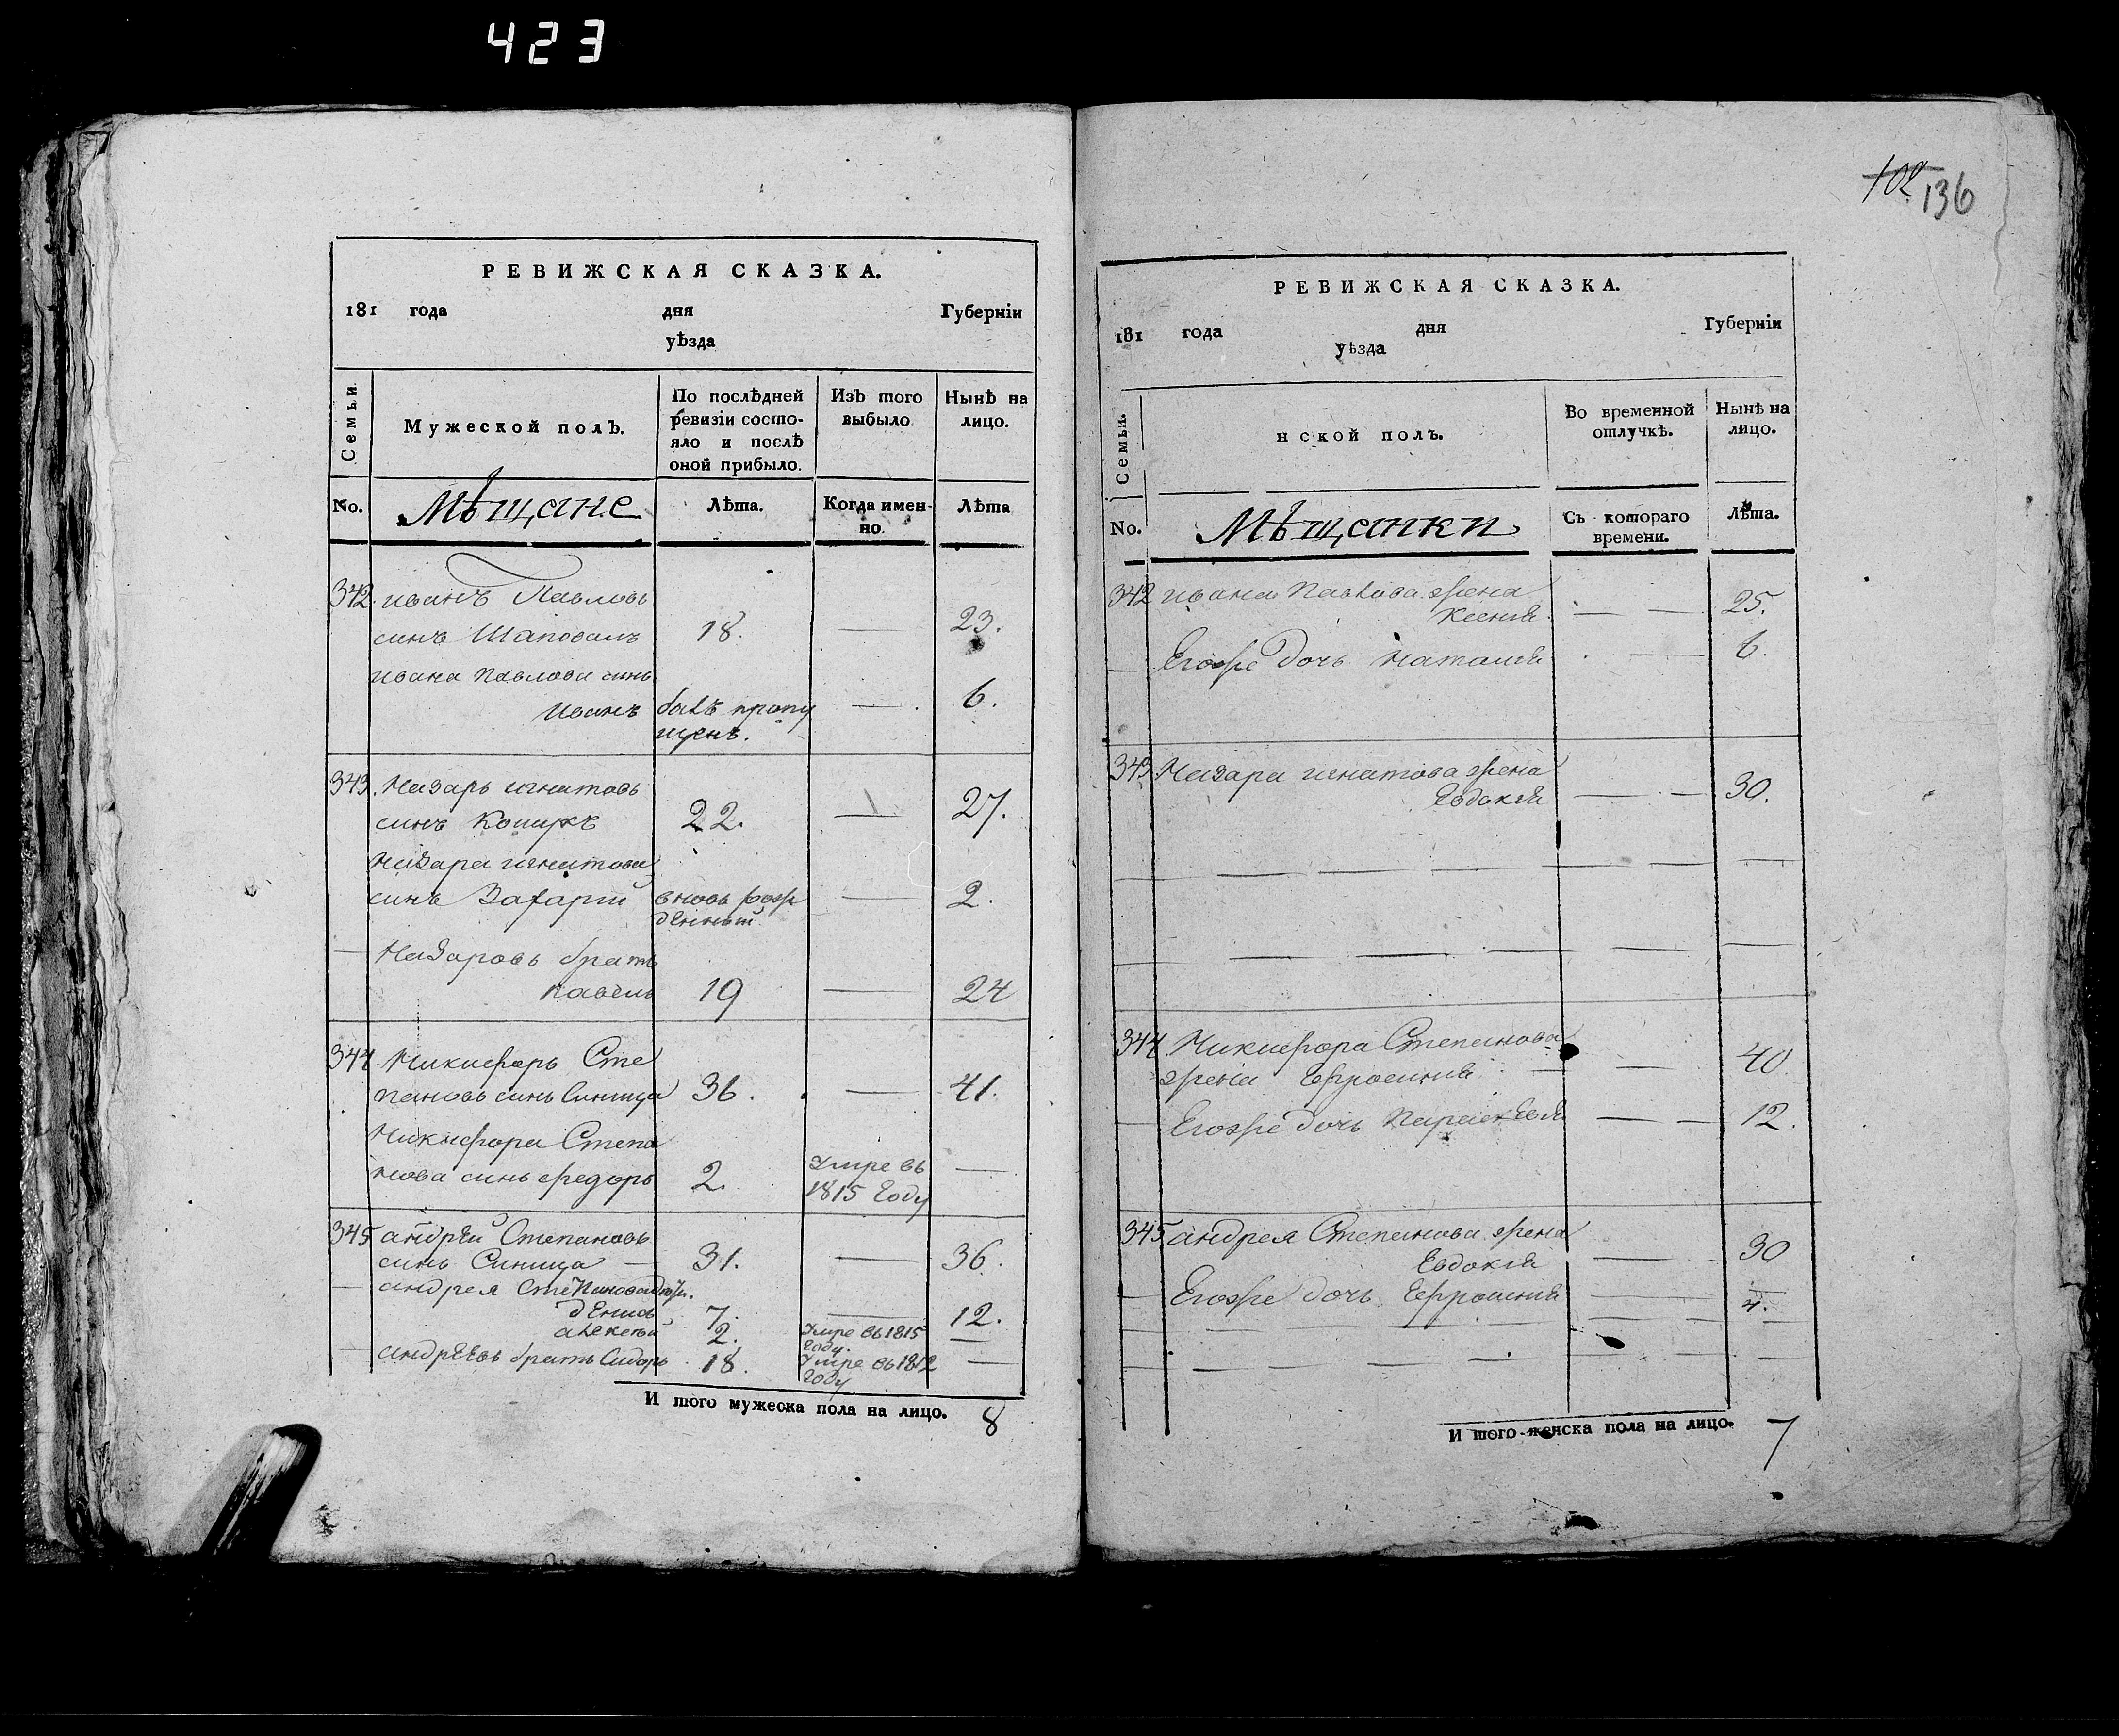 423
РЕВИЖСКАЯ СКАЗКА.
181 года дня Губерніи
уѣзда
Семьи
Мужеской полъ.
По послѣдней ревизіи состо-
яло и послѣ
оной прибыло.
Изъ того
выбыло
Нынѣ на
лицо.
No.
Мѣщане
Лѣта.
Когда имен-
но.
Лѣта
342. иванъ Павловъ
синъ Шаповалъ 18. — 23.
ивана Павлова синъ
иванъ билъ пропу — 6.
щенъ.
343. Назаръ игнатовъ
синъ 22. — 27.
Назара игнатова
синъ Захарій вновь рож — 2.
денный
— Назаровъ братъ
павелъ 19 — 24
344. Никифоръ Сте
пановъ синъ Синица 36. — 41.
Никифора Степа
нова синъ федоръ 2. Умре въ —
1815 году
345 андрѣй Степановъ
синъ Синица — 31. — 36.
— андрея Степанова
денисъ 7. — 12.
алексѣй 2. Умре въ 1815 —
году.
— андрѣевъ братъ Сидоръ 18. Умре въ 1812 —
году
И того мужеска пола на лицо. 8
102 136
РЕВИЖСКАЯ СКАЗКА.
181 года дня Губерніи
уѣзда
Семьи.
нской полъ.
Во временной
отлучкѣ.
Нынѣ на
лицо.
No.
Мѣщанки
Съ котораго
времени.
Лѣта.
342 ивана Павлова жена
Ксения — — 25.
— Егоже дочь наталия — 6.
343. Назара игнатова жена
Евдокія — — 30.
344. Никифора Степанова
жена Ефросиния — — 40.
— Егоже дочь Параскевія — — 12.
345 андрея Степанова жена
Евдокія — 30
— Егоже дочь Ефросиния — 4.
И того женска пола на лицо. 7